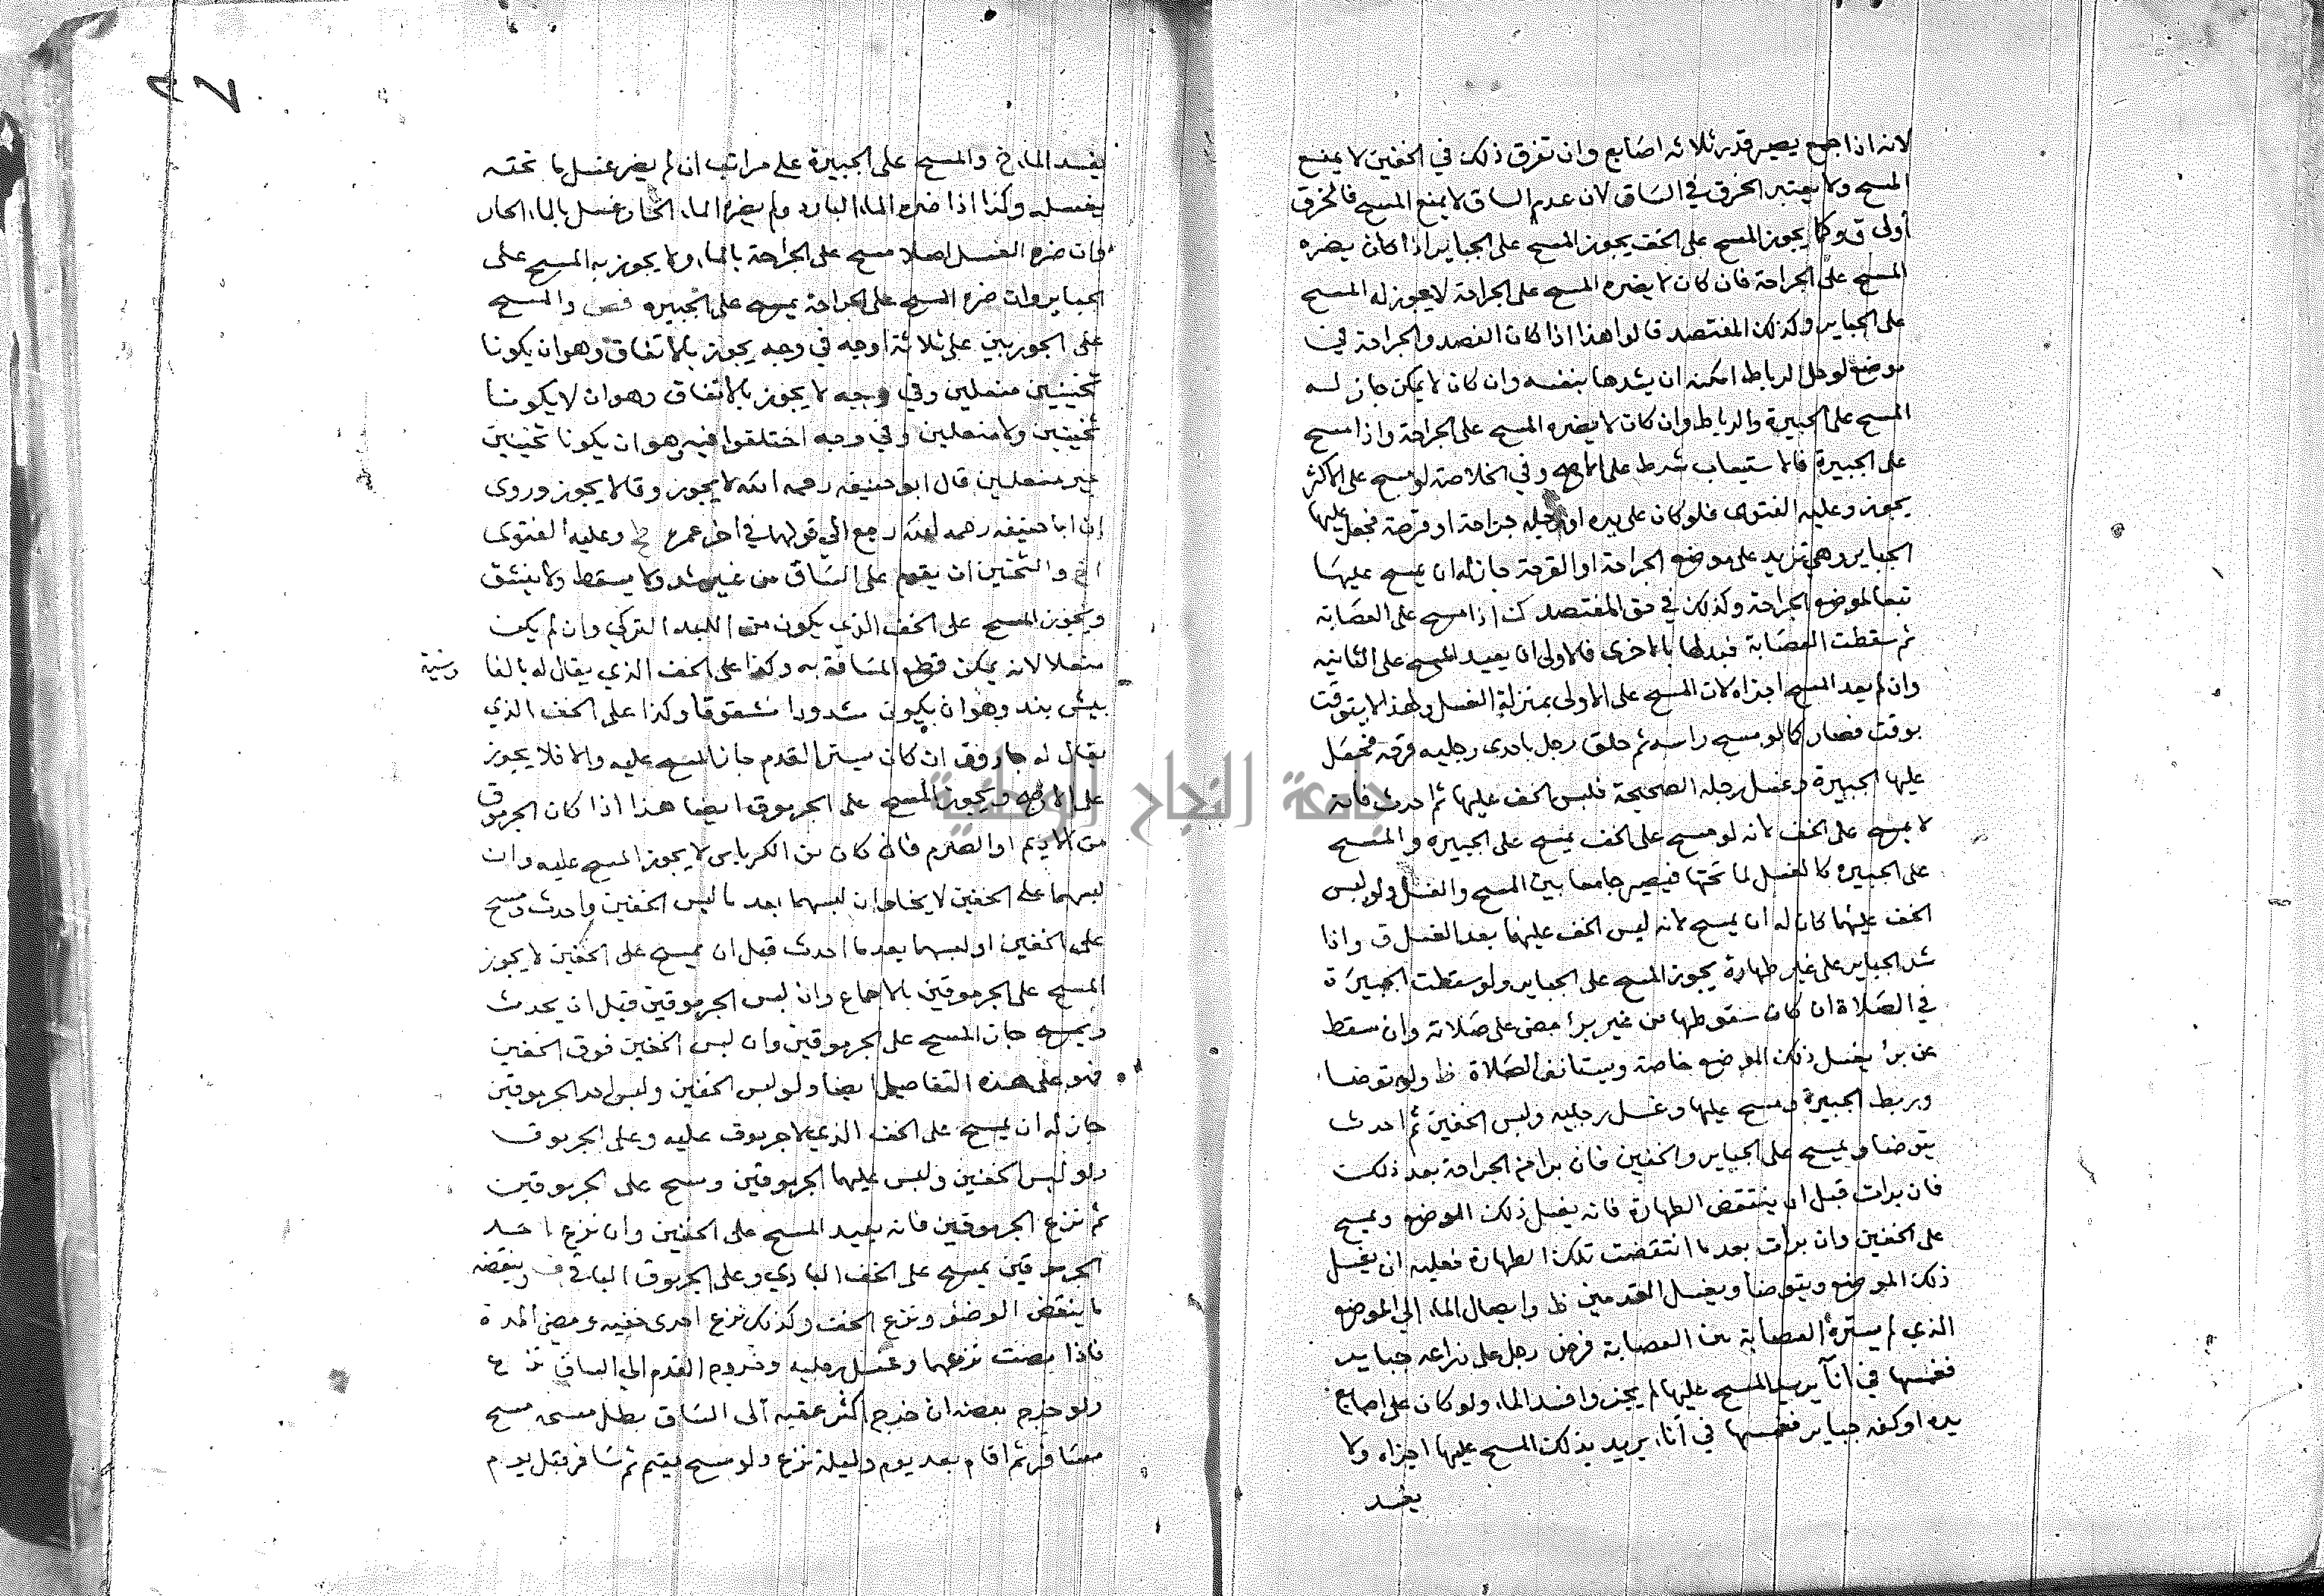 لانه اذا جمع يصير قدر ثلاثه اصابع وان تفرق ذلك في الخفين لا يمنع
المسح ولا يعتبر الخرق في الساق لان عدم الساق لا يمنع المسح فالخرق
أولى ق وكما يجوز المسح على الخف يجوز المسح على الجباير اذا كان يضره
المسح على الجراحة فان كان لا يضره المسح على الجراحة لا يجوز له المسح
على الجباير وكذلك المفتصد قالوا هذا اذا كان الفصد والجراحة في
موضع لو حل الرباط امكنه ان يشدها بنفسه وان كان لا يمكن جاز له
المسح على الجبيرة والرباط وان كان لا يضره المسح على الجراحة واذا مسح
على الجبيرة فالاستيعاب شرط على الاصح وفي الخلاصة لو مسح على الاكثر
يجوز وعليه الفتوى فلو كان على يده او رجله جراحة او قرحة فجعل عليها
الجباير وهي تزيد على موضع الجراحة او القرحة جاز له ان يمسح عليها
تبعا لموضع الجراحة وكذلك في حق المفتصد اذا مسح على العصابة
ثم سقطت العصابة فبدلها بالاخرى فالاولى ان يعيد المسح على الثانيه
وان لم يعد المسح اجزاه لان المسح على الاولى بمنزلة الغسل ولهذا لا يتوقت
بوقت فصار كما لو مسح راسه ثم حلق رجل باحدى رجليه قرحة فجعل
عليها الجبيرة وغسل رجله الصحيحة فلبس الخف عليها ثم احدث فانه
لا يمسح على الخف لانه لو مسح على الخف يمسح على الجبيره والمسح
على الجبيره كالغسل لما تحتها فيصير جامعا بين المسح والغسل ولو لبس
الخف عليهما كان له ان يمسح لانه لبس الخف عليهما بعد الغسل ق واذا
شد الجباير على غير طهارة يجوز المسح على الجباير ولو سقطت الجبيرة
في الصلاة ان كان سقوطها من غير برأ مضى على صلاته وان سقط
عن برأ يغسل ذلك الموضع خاصة ويستانف الصلاة ظ ولو توضا
وربط الجبيرة ومسح عليها وغسل رجليه ولبس الخفين ثم احدث
يتوضا ويمسح على الجباير والخفين فان برا من الجراحة بعد ذلك
فان برات قبل ان ينتقض الطهارة فانه يغسل ذلك الموضع ويمسح
على الخفين وان برات بعد ما انتقضت تلك الطهارة فعليه ان يغسل
ذلك الموضع ويتوضا ويغسل القدمين ظ وايصال الماء الى الموضع
الذي لم يستره العصابة بين العصابة فرض رجل على ذراعه جباير
فغمسها في انآ يريد المسح عليها لم يجز وافسد الماء ولو كان على اصابع
يده او كفه جباير فغمسها في انآء يريد بذلك المسح عليها اجزاه ولا
يفسد
٢٧
يفسد الماء خ والمسح على الجبيرة على مراتب ان لم يضر غسل ما تحته
يغسله وكذا اذا ضره الماء البارد ولم يضره الماء الحار غسل بالماء الحار
وان ضره الغسل اصلا مسح على الجراحة بالماء ولا يجوز به المسح على
الجباير وان ضره المسح على الجراحة يمسح على الجبيره والمسح
على الجوربين على ثلاثة اوجه في وجه يجوز بالاتفاق وهو ان يكونا
ثخينين منعلين وفي وجه لا يجوز بالاتفاق وهو ان لا يكونا
ثخينين ولا منعلين وفي وجه اختلفوا فيه وهو ان يكونا ثخينين
غير منعلين قال ابو حنيفه رحمه الله لا يجوز وقالا يجوز وروى
ان ابا حنيفه رحمه الله رجع الى قولهما في اخر عمره وعليه الفتوى
والثخين ان يقوم على الساق من غير شد ولا يسقط ولا ينشق
ويجوز المسح على الخف الذي يكون من اللبد التركي وان لم يكن
منعلا لانه يمكن قطع المسافة به وكذا على الخف الذي يقال له بالفا
رسية
بيش بند وهو ان يكون مشدودا مشقوقا وكذا على الخف الذي
يقال له جاروق ان كان يستر القدم جاز المسح عليه والا فلا يجوز
على الاصح ويجوز المسح على الجرموق ايضا هذا اذا كان الجرموق
من الاديم او الصرم فان كان من الكرباس لا يجوز المسح عليه وان
لبسهما على الخفين لا يخلو ان لبسهما بعد ما لبس الخفين واحدث ومسح
على الخفين او لبسهما بعد ما احدث قبل ان يمسح على الخفين لا يجوز
المسح على الجرموقين بالاجماع وان لبس الجرموقين قبل ان يحدث
ويمسح جاز المسح على الجرموقين وان لبس الخفين فوق الخفين
فهو على هذه التفاصيل ايضا ولو لبس الخفين ولبس احد الجرموقين
جاز له ان يمسح على الخف الذي لا جرموق عليه وعلى الجرموق
ولو لبس الخفين ولبس عليهما الجرموقين ومسح على الجرموقين
ثم نزع الجرموقين فانه يعيد المسح على الخفين وان نزع احد
الجرموقين يمسح على الخف البادي وعلى الجرموق الباقي وينقضه
ما ينقض الوضؤ ونزع الخف وكذلك نزع احدى خفيه ومضي المدة
فاذا مضت نزعهما وغسل رجليه وخروج القدم الى الساق نزع
ولو خرج بعضه ان خرج اكثر عقبه الى الساق بطل مسحه مسح
مسافر ثم اقام بعد يوم وليلة نزع ولو مسح مقيم ثم سافر قبل يوم
جامعة النجاح الوطنية